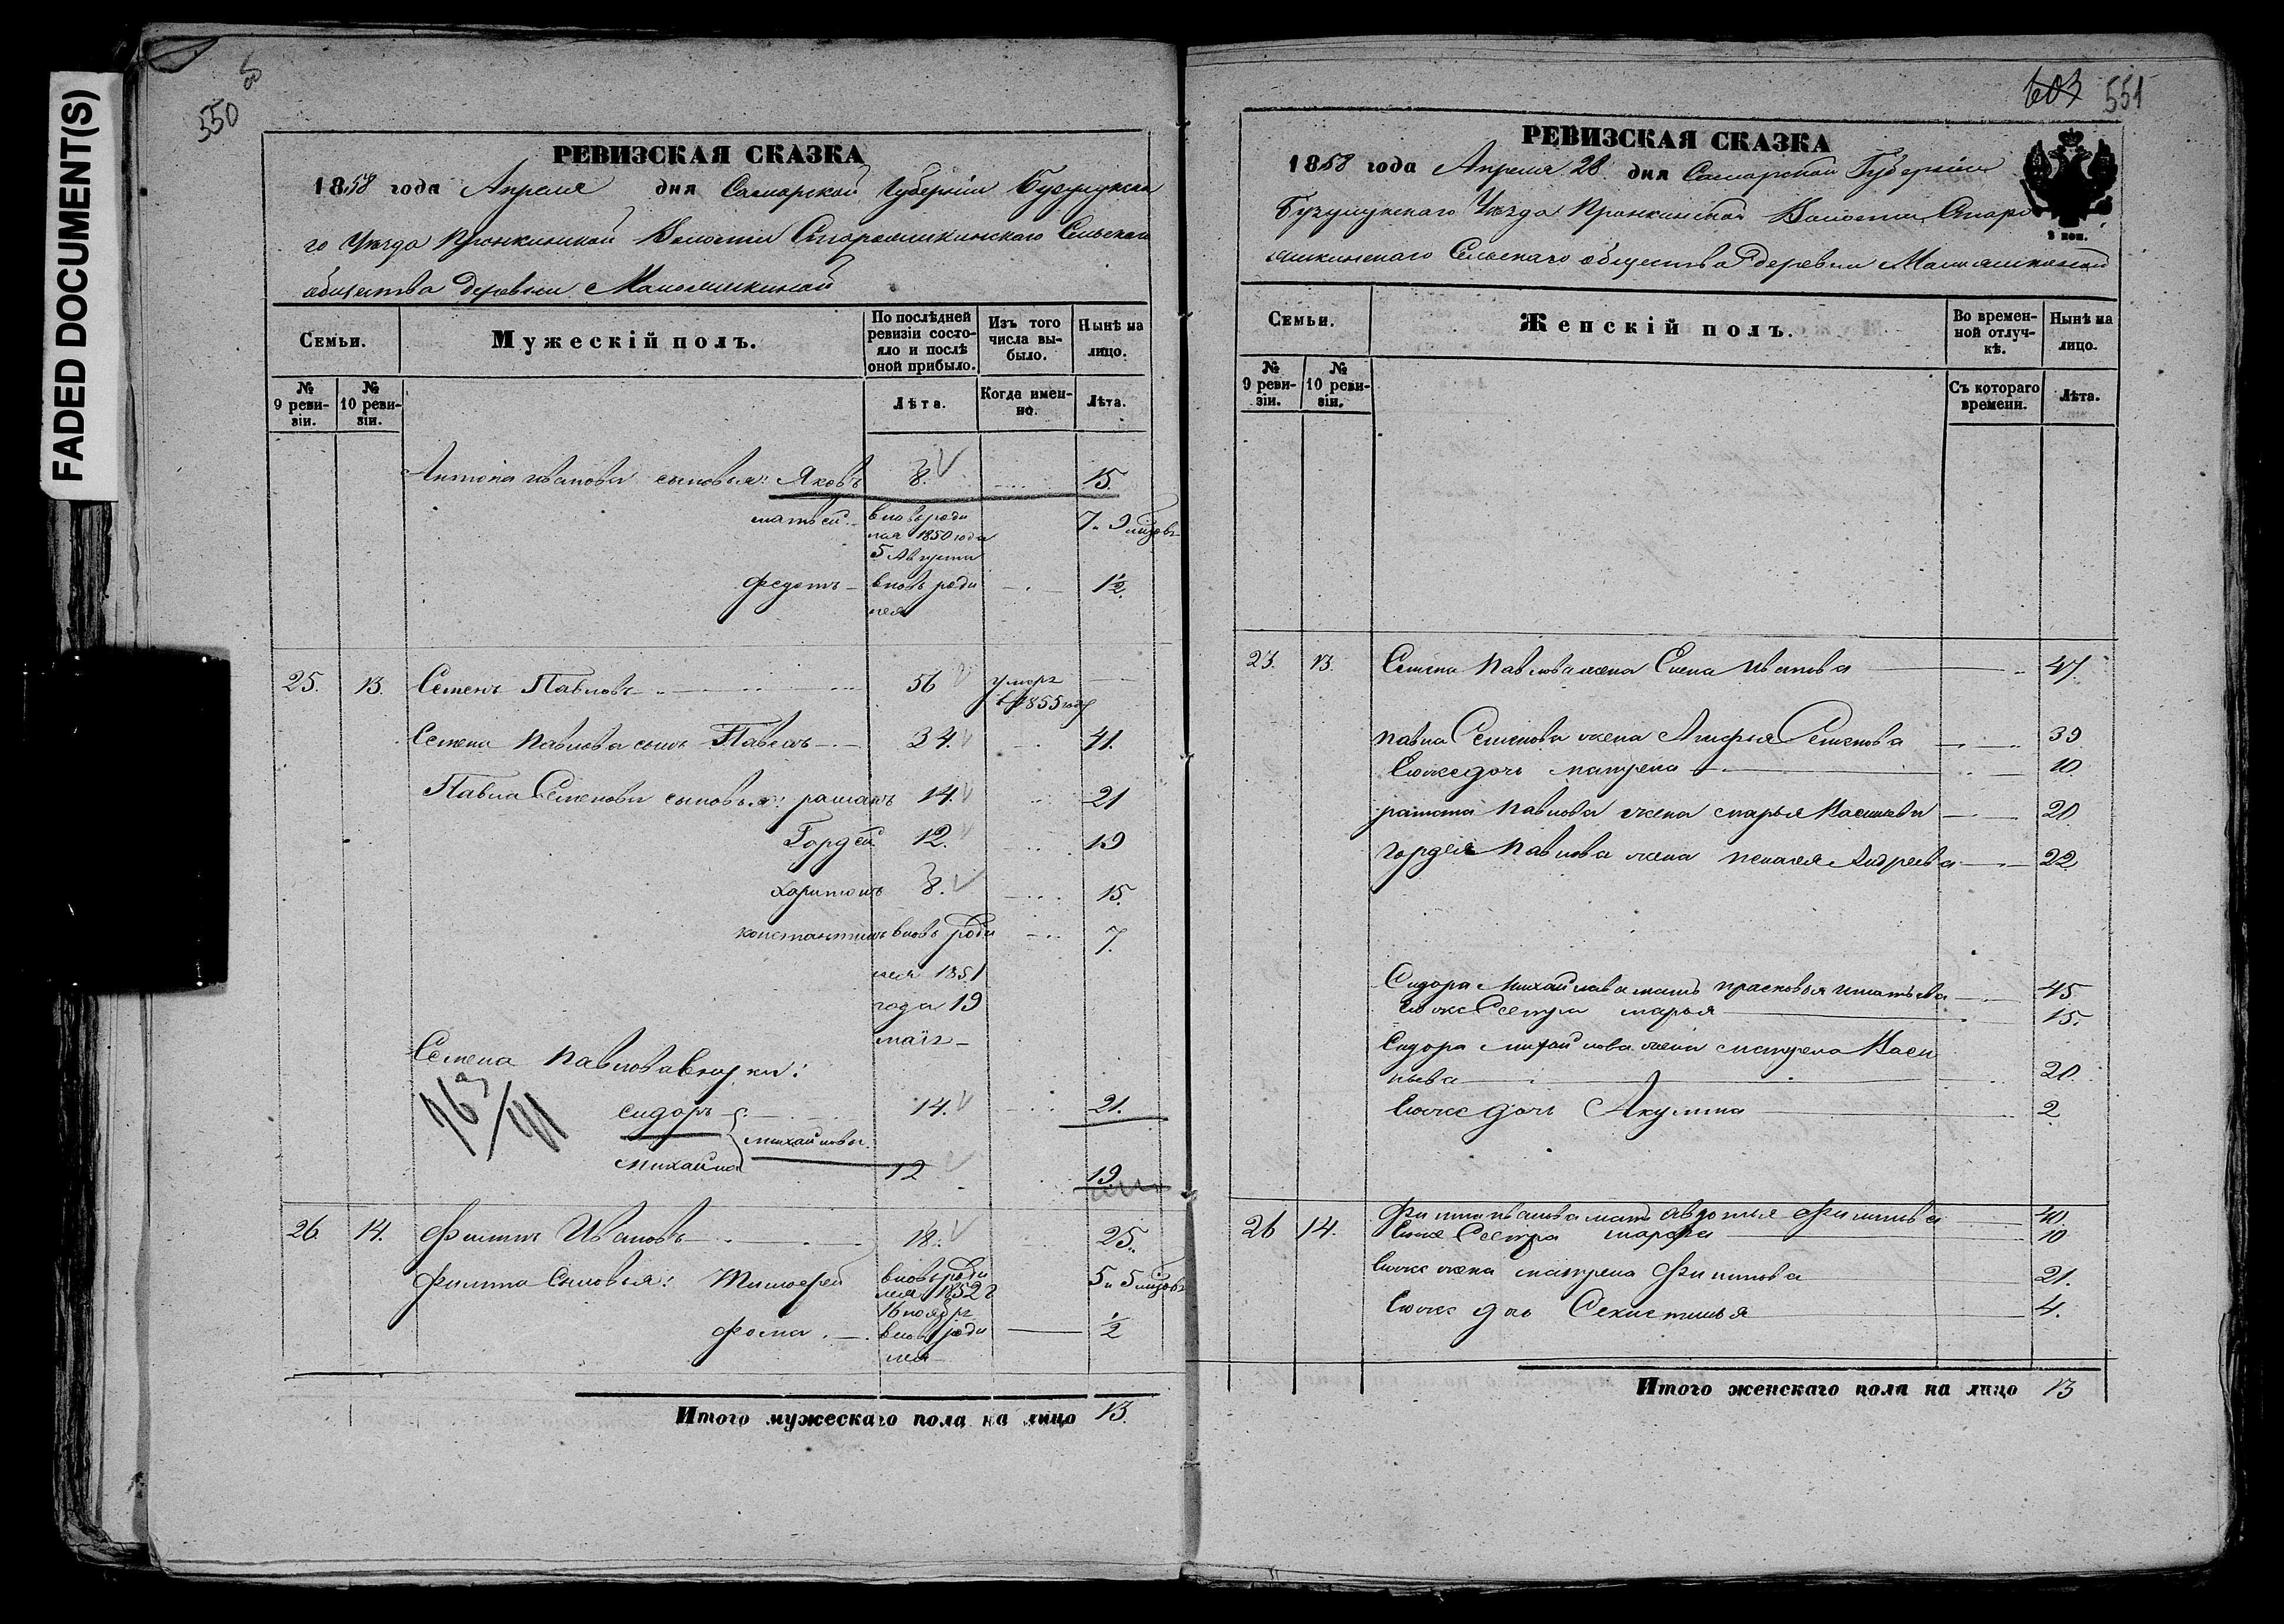 FADED DOCUMENT(S)
550
РЕВИЗСКАЯ СКАЗКА
1858 года Апреля дня Самарской Губерніи Бузулукска
го Уѣзда Пронкинской Волости Старояшкинскаго Сельскаго
общества Деревни Малояшкиной
Семьи.
Мужескій полъ.
По послѣдней ревизіи состояло и послѣ оной прибыло.
Изъ того числа выбыло.
Нынѣ на лицо.
№ 9 ревизіи.
№ 10 ревизіи.
Лѣта.
Когда именно.
Лѣта.
Антона иванова сыновья: Яковъ 8. 15.
матвей вновь роди 7 и 9 мѣцовъ
лся 1850 года
5 Августа
федотъ вновь роди 1/2.
лся
25. 13. Семенъ Павловъ 56 умеръ
в 1855 году
Семена Павлова сынъ Павелъ 34. 41.
Павла Семенова сыновья: раманъ 14. 21
Гордей 12. 19
Харитонъ 8. 15.
константинъ вновь роди 7.
лся 1851
года 19
маія
Семена Павлова внуки:
сидоръ 14. 21.
михайловы.
михайла 12 19.
26. 14. Филипъ Ивановъ 18. 25.
Филипа Сыновья: Тимофей вновь роди 5 и 5 мѣцовъ
лся 1852 г
16 ноября
фома вновь роди 1/2
лся
Итого мужескаго пола на лицо 13.
603 551
РЕВИЗСКАЯ СКАЗКА
1858 года Апреля 28 дня Самарской Губерніи
Бузулукскаго Уѣзда Пронкинской Волости Старо
яшкинскаго Сельскаго общества Деревни Малояшкиной
Семьи.
Женскій полъ.
Во временной отлучкѣ.
Нынѣ на лицо.
№ 9 ревизіи.
№ 10 ревизіи.
Съ котораго времени.
Лѣта.
23. 13. Семена Павлова жена Елена Иванова 47.
Павла Семенова жена Агафья Семенова 39
Ево же дочь матрена 10.
рамана Павлова жена марья Васильева 20
гордея Павлова жена пелагея Андреева 22
Сидора Михайлова мать прасковья игнатьева 45
Ево же Сестра марья 15.
Сидора михайлова жена матрена Васи
льева 20
Ево же дочь Акулина 2
26 14. Филипа иванова мать авдотья Филипова 40.
Ево же Сестра марфа 10
Ево же жена матрена Филипова 21.
Ево же дочь 4.
Итого женскаго пола на лицо 13